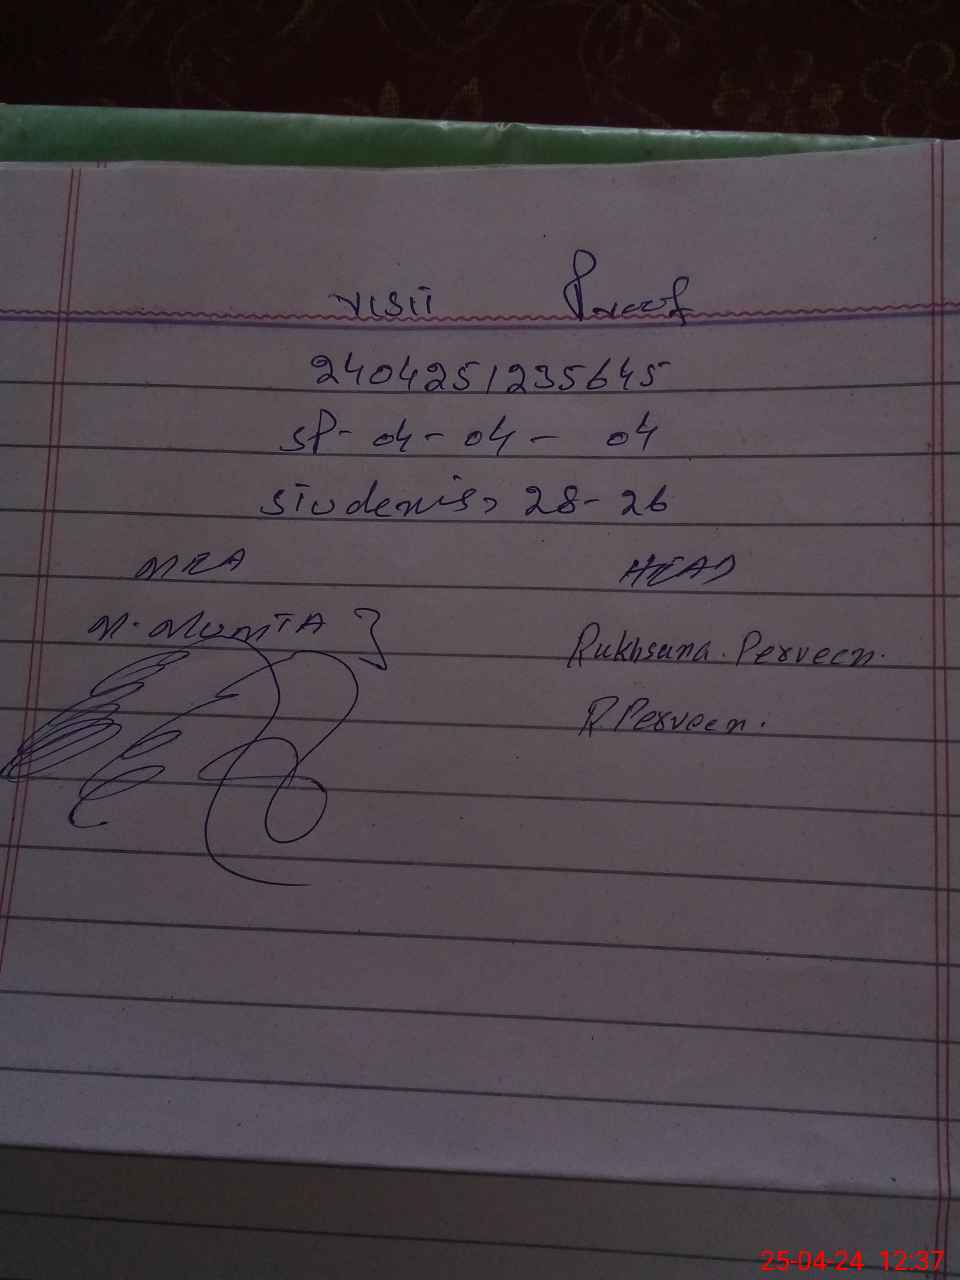 VISIT Proof
2404251235645
SP- 04-04- 04
Students, 28-26
MEA HEAD
M. MumTA }
Rukhsana. Perveen.
R Perveen.
25-04-24 12:37